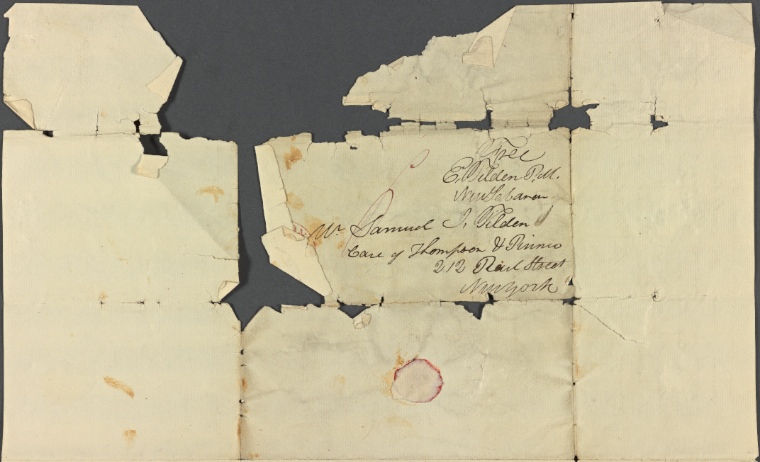 Free
E. Tilden P.M.
New Lebanon
Mr Samuel J. Tilden
Care of Thompson &
212 Pearl Street
New York